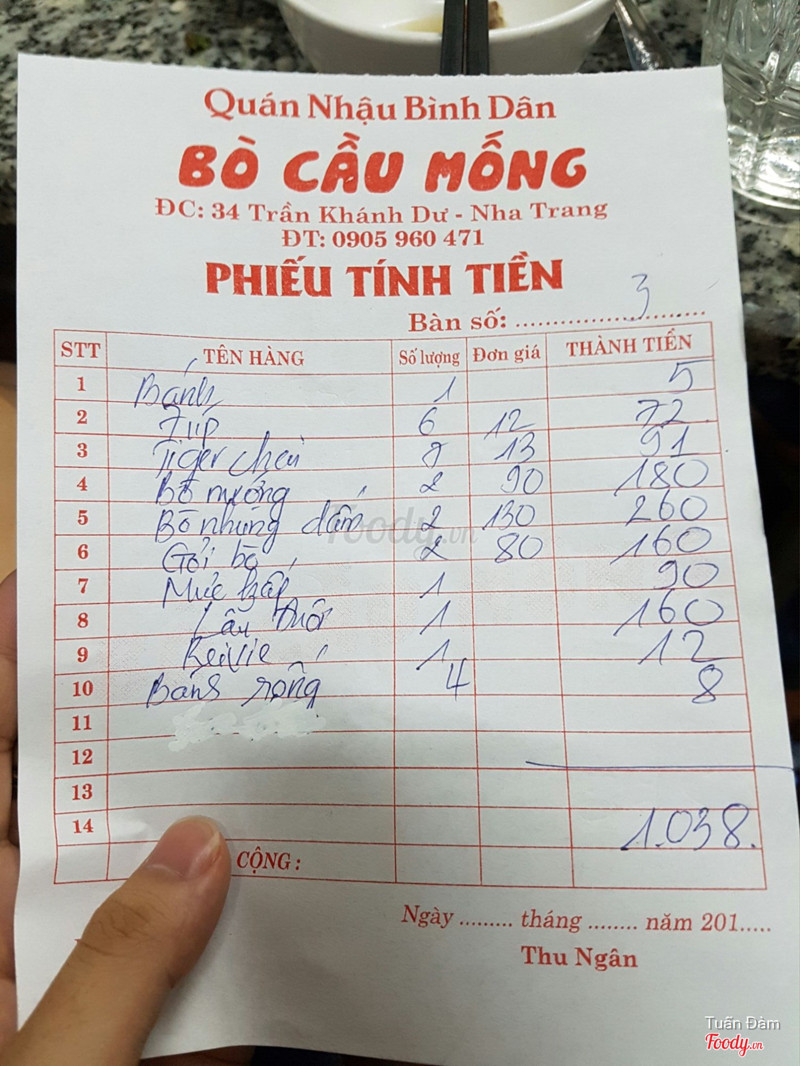 Quán Nhậu Bình Dân
BÒ CẦU MỐNG
ĐC: 34 Trần Khánh Dư - Nha Trang
ĐT: 0905 960 471
PHIẾU TÍNH TIỀN
Bàn số: 3
STT TÊN HÀNG Số lượng Đơn giá THÀNH TIỀN
1 Bánh 1 5
2 7up 6 12 72
3 Tiger chai 7 13 91
4 Bò nướng 2 90 180
5 Bò nhúng dấm 2 130 260
6 Gỏi bò 2 80 160
7 Mực 1 90
8 Lẩu 1 160
9 1 12
10 Bánh 4 8
11
12
13
14 1.038.
CỘNG :
Ngày ......... tháng ........ năm 201.....
Thu Ngân
Foody.vn
Tuấn Đàm
Foody.vn